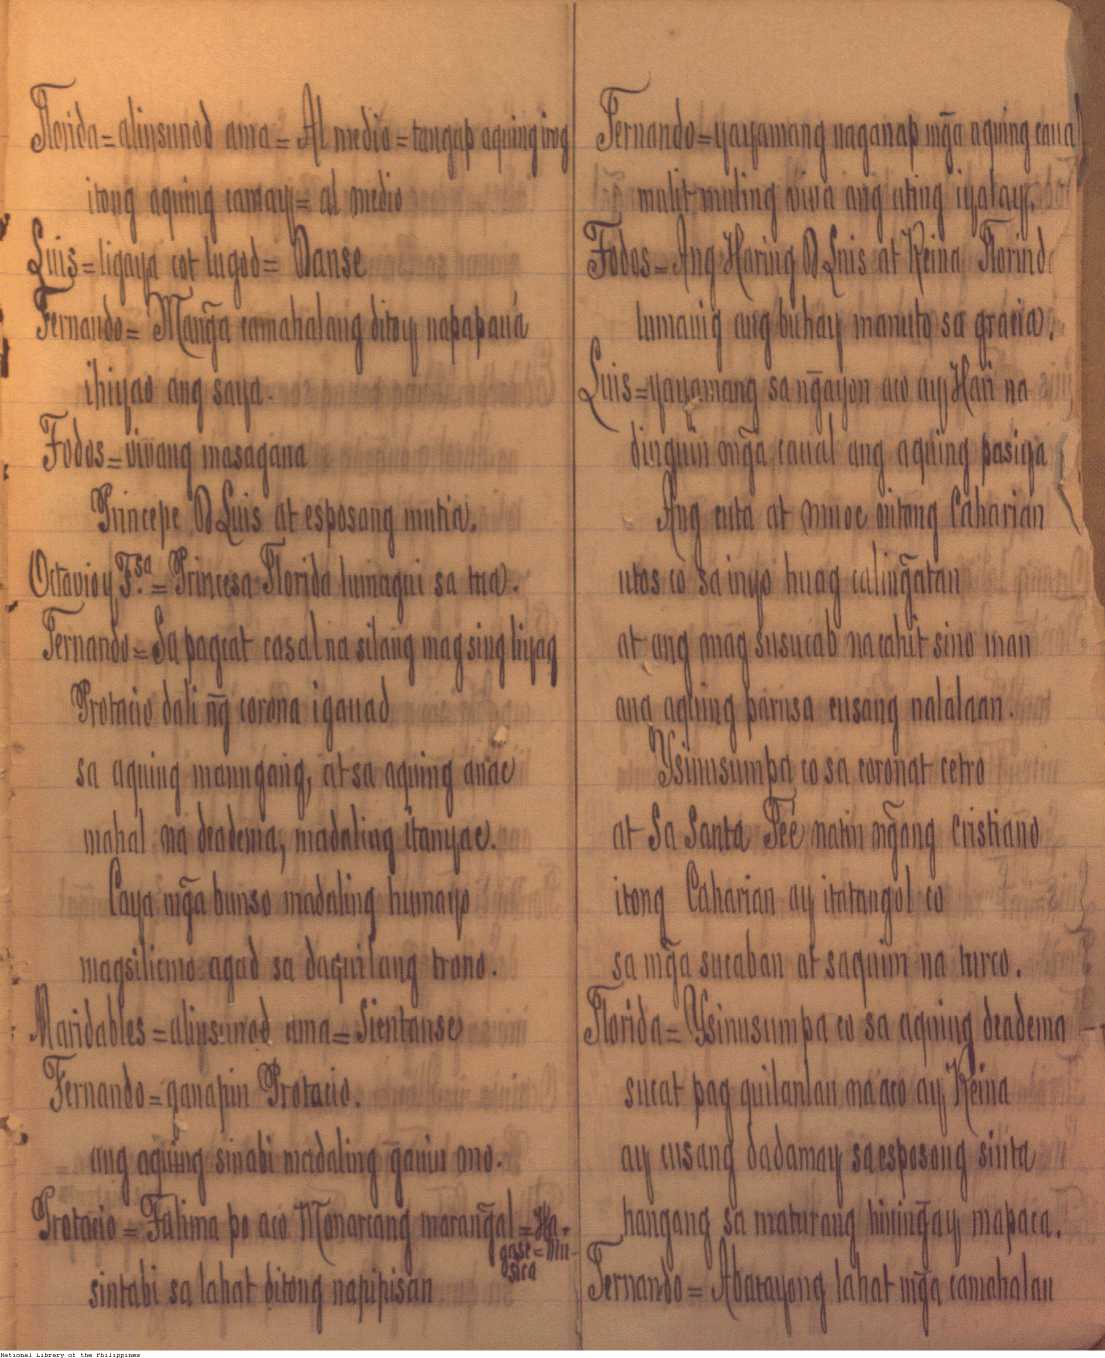 Florida = alinsunod ama = Al medio = tangap aquing irog
itong aquing camay = al medio
Luis = ligaya cot lugod = Danse
Fernando = Manga camahalang ditoy napapaná
ihiyao ang saya.
Todos = vivang masagana
Princepe D Luis at esposang mutia.
Octavio y F.sa = Princesa Florida lumagui sa tua.
Fernando = Sa pagcat casal na silang mag sing liyag
Protacio dali ñg corona igauad
sa aquing manugang, at sa aquing anac
mahal na deadema, madaling itanyac.
Caya mg̃a bunso madaling humayo
magsilicmo agad sa daquilang trono.
Maridables = alinsunod ama = Sientanse
Fernando = ganapin Protacio.
ang aquing sinabi madaling gauin mo.
Protacio = Fatima po aco Monarcang marang̃al = Ha-
gase = Mu-
sica
sintabi sa lahat ditong napipisan
Fernando = yayamang naganap mg̃a aquing caua
mulit muling viva ang ating iyalay.
Todos = Ang Haring D Luis at Reina Florind
lumauig ang buhay manuto sa gracia.
Luis = yayamang sa ng̃ayon aco ay Hari na
dinguin mg̃a caual ang aquing pasiya
Ang cuta at muoc nitong Caharian
utos co sa inyo huag caling̃atan
at ang mag susucab na cahit sino man
ang aquing parusa cusang nalalaan.
Ysinusumpa co sa coronat cetro
at Sa Santa Feé natin mg̃ang cristiano
itong Caharian ay itatangol co
sa mg̃a sucaban at saquim na turco.
Florida = Ysinusumpa co sa aquing deadema
sucat pag quilanlan na aco ay Reina
ay cusang dadamay sa esposong sinta
hangang sa maturang hining̃ay mapaca.
Fernando = Abatayong lahat mg̃a camahalan
National Library of the Philippines